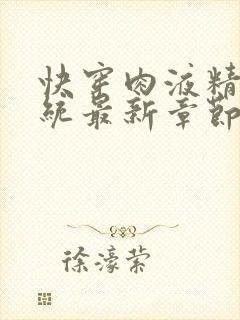 快穿肉液精
统最新章节
徐濠萦